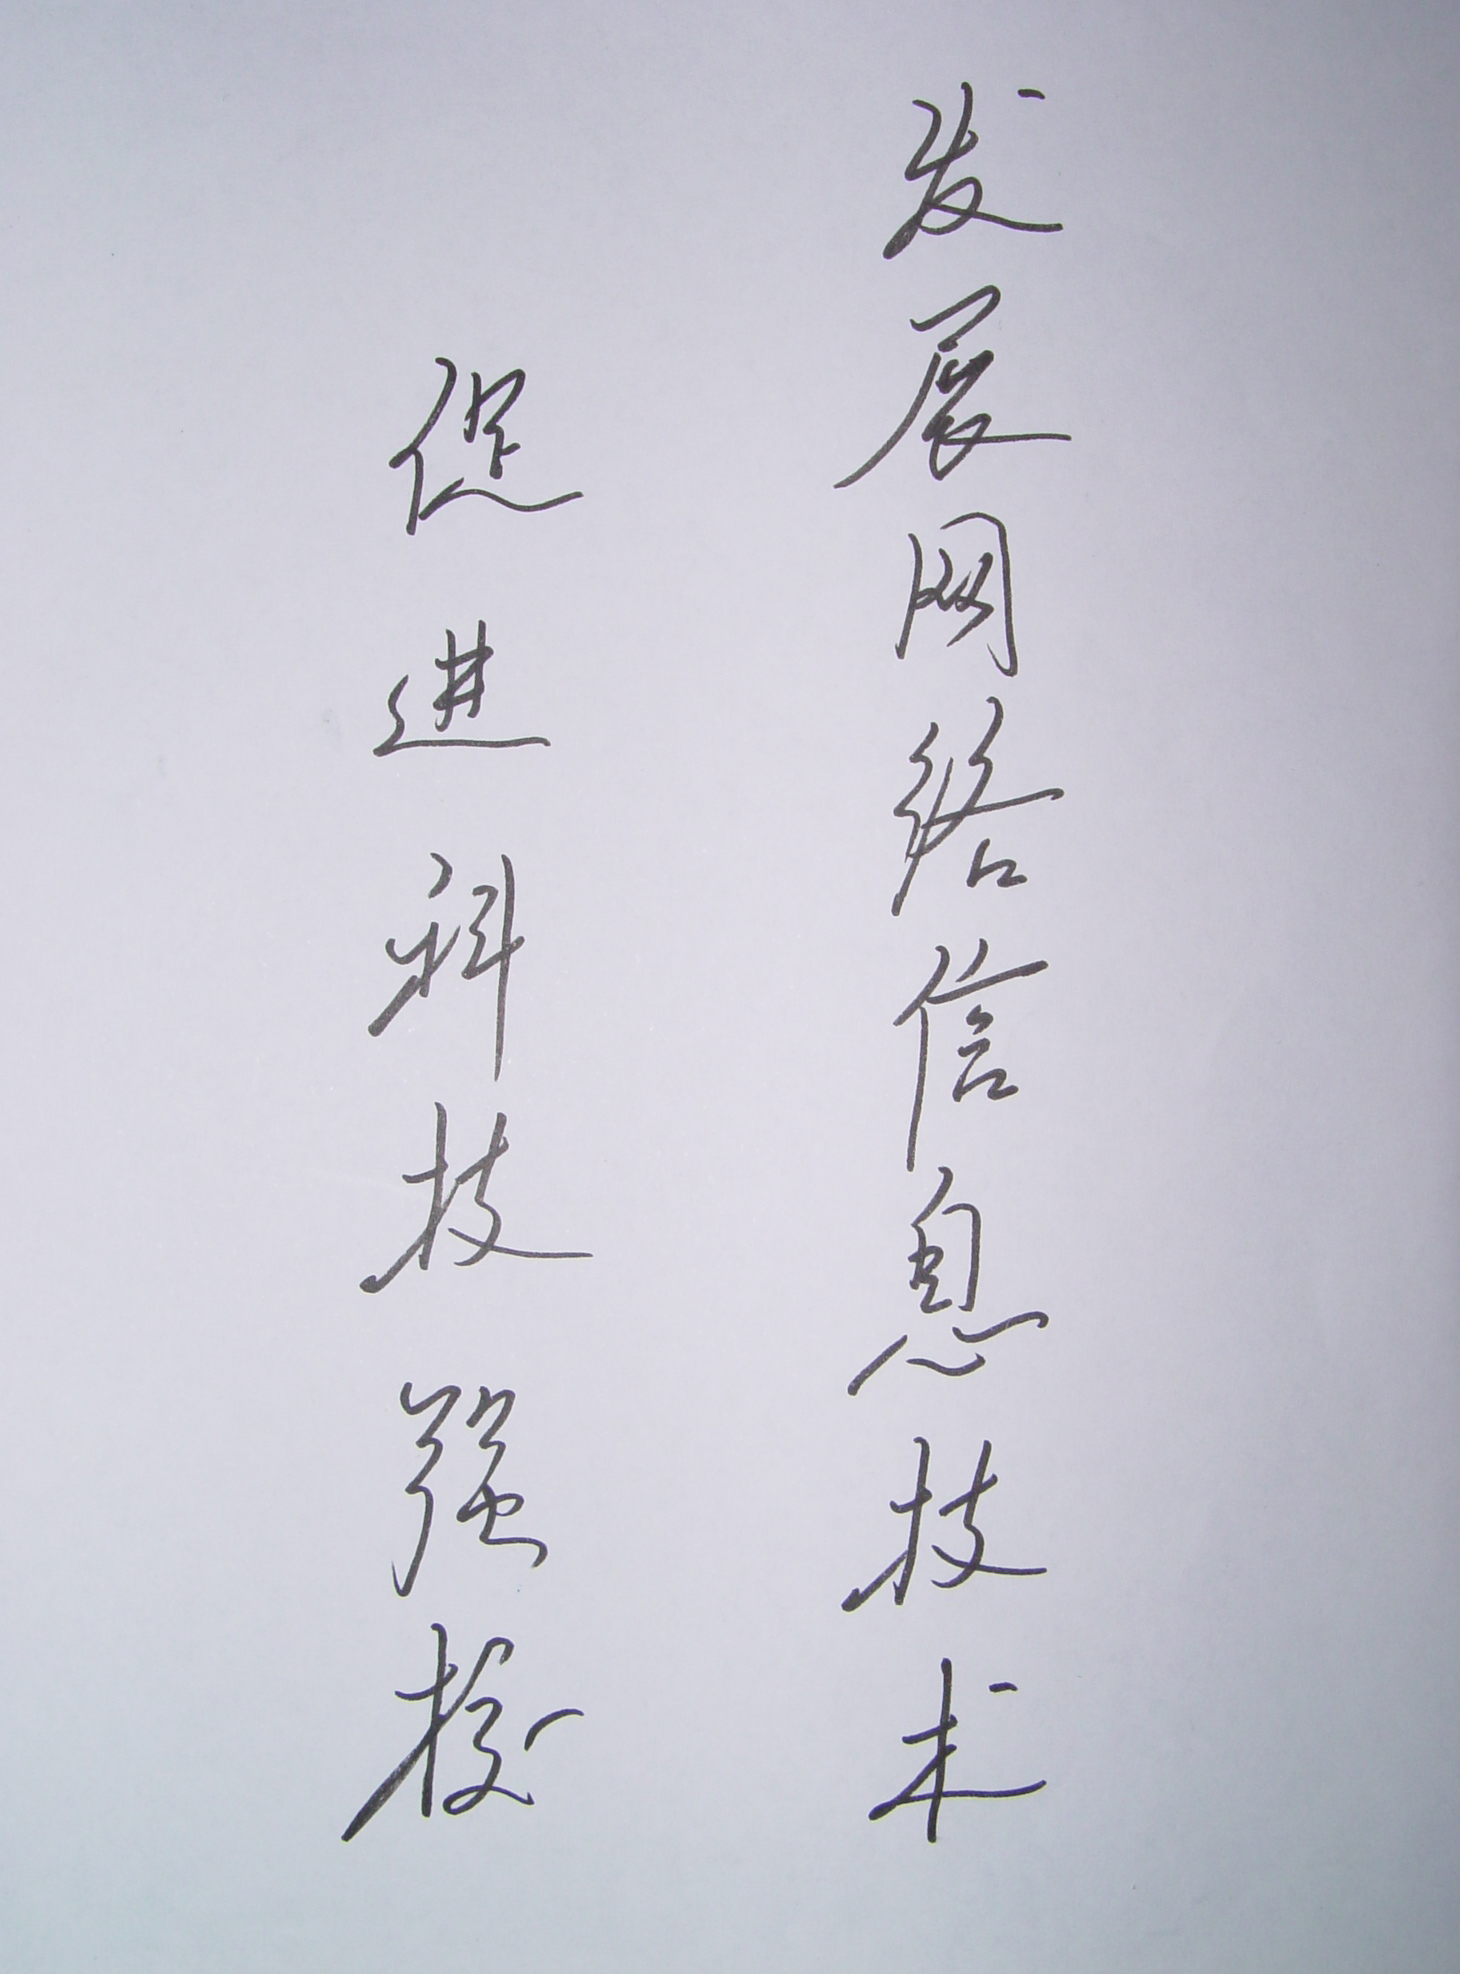 发展网络信息技术
促进科技强校